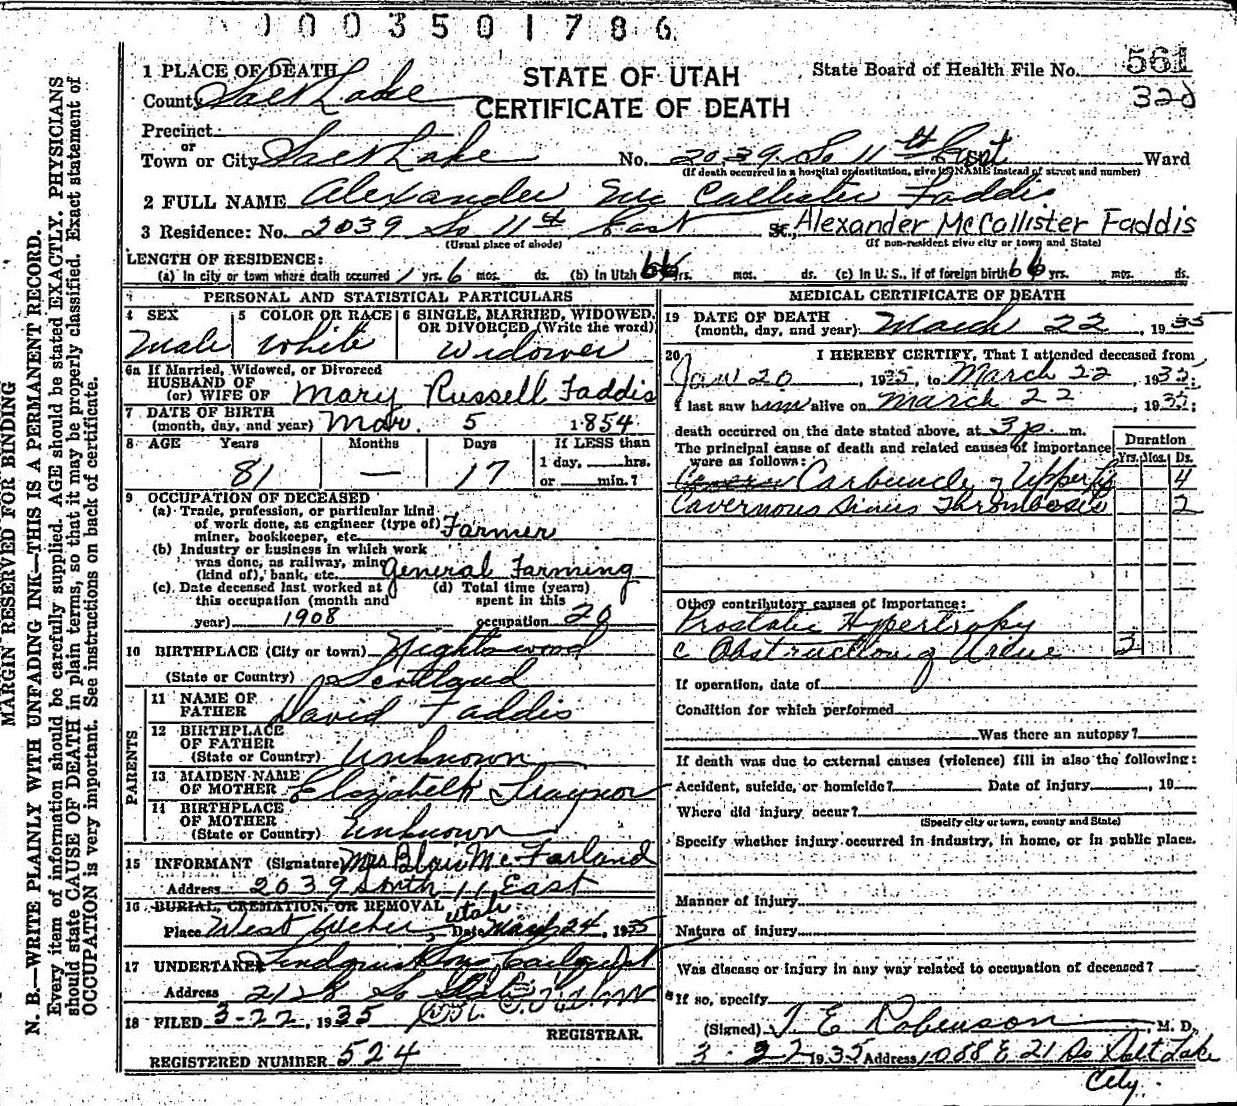 0003501786
MARGIN RESERVED FOR BINDING
N. B.—WRITE PLAINLY WITH UNFADING INK—THIS IS A PERMANENT RECORD.
Every item of information should be carefully supplied. AGE should be stated EXACTLY. PHYSICIANS
should state CAUSE OF DEATH in plain terms, so that it may be properly classified. Exact statement of
OCCUPATION is very important. See instructions on back of certificate.
STATE OF UTAH
CERTIFICATE OF DEATH
State Board of Health File No. 561
328
1 PLACE OF DEATH
County Salt Lake
Precinct
or
Town or City Salt Lake No. 2039 So 11th East Ward
(If death occurred in a hospital or institution, give its NAME instead of street and number)
2 FULL NAME Alexander Mc Callister Faddis
3 Residence: No. 2039 So 11th East St., Alexander McCallister Faddis
(Usual place of abode) (If non-resident give city or town and State)
LENGTH OF RESIDENCE:
(a) In city or town where death occurred 1 yrs. 6 mos. ds. (b) In Utah 66 yrs. mos. ds. (c) In U. S., if of foreign birth 66 yrs. mos. ds.
PERSONAL AND STATISTICAL PARTICULARS
4 SEX Male
5 COLOR OR RACE White
6 SINGLE, MARRIED, WIDOWED, OR DIVORCED (Write the word) Widower
6a If Married, Widowed, or Divorced
HUSBAND OF
(or) WIFE OF Mary Russell Faddis
7 DATE OF BIRTH
(month, day, and year) Mar. 5 1854
8 AGE Years Months Days If LESS than
81 — 17 1 day, hrs.
or min.?
9 OCCUPATION OF DECEASED
(a) Trade, profession, or particular kind
of work done, as engineer (type of)
miner, bookkeeper, etc. Farmer
(b) Industry or business in which work
was done, as railway, mine
(kind of), bank, etc. General Farming
(c) Date deceased last worked at
this occupation (month and
year) 1908
(d) Total time (years)
spent in this
occupation 20
10 BIRTHPLACE (City or town)
(State or Country) Scotland
PARENTS
11 NAME OF
FATHER David Faddis
12 BIRTHPLACE
OF FATHER
(State or Country) Unknown
13 MAIDEN NAME
OF MOTHER Elizabeth Traynor
14 BIRTHPLACE
OF MOTHER
(State or Country) Unknown
15 INFORMANT (Signature) Mrs Blair McFarland
Address 2039 South 11 East
16 BURIAL, CREMATION, OR REMOVAL
Place West Weber, Utah Date March 24, 1935
17 UNDERTAKER
Address 2128 So State
18 FILED 3-22, 1935
REGISTRAR.
REGISTERED NUMBER 524
MEDICAL CERTIFICATE OF DEATH
19 DATE OF DEATH
(month, day, and year) March 22, 1935
20 I HEREBY CERTIFY, That I attended deceased from
Jan 20, 1935, to March 22, 1935;
I last saw him alive on March 22, 1935;
death occurred on the date stated above, at 3 p m.
The principal cause of death and related causes of importance
were as follows:
Duration
Yrs. Mos. Ds.
Carbuncle of Upper Lip 4
Cavernous Sinus Thrombosis 2
Other contributory causes of importance:
Prostatic Hypertropy
c Obstruction of Urine 3
If operation, date of
Condition for which performed
Was there an autopsy?
If death was due to external causes (violence) fill in also the following:
Accident, suicide, or homicide? Date of injury , 19
Where did injury occur?
(Specify city or town, county and State)
Specify whether injury occurred in industry, in home, or in public place.
Manner of injury
Nature of injury
Was disease or injury in any way related to occupation of deceased?
If so, specify
(Signed) T E Robinson, M. D.
3-22 1935 Address 1088 E 21 So Salt Lake
City.